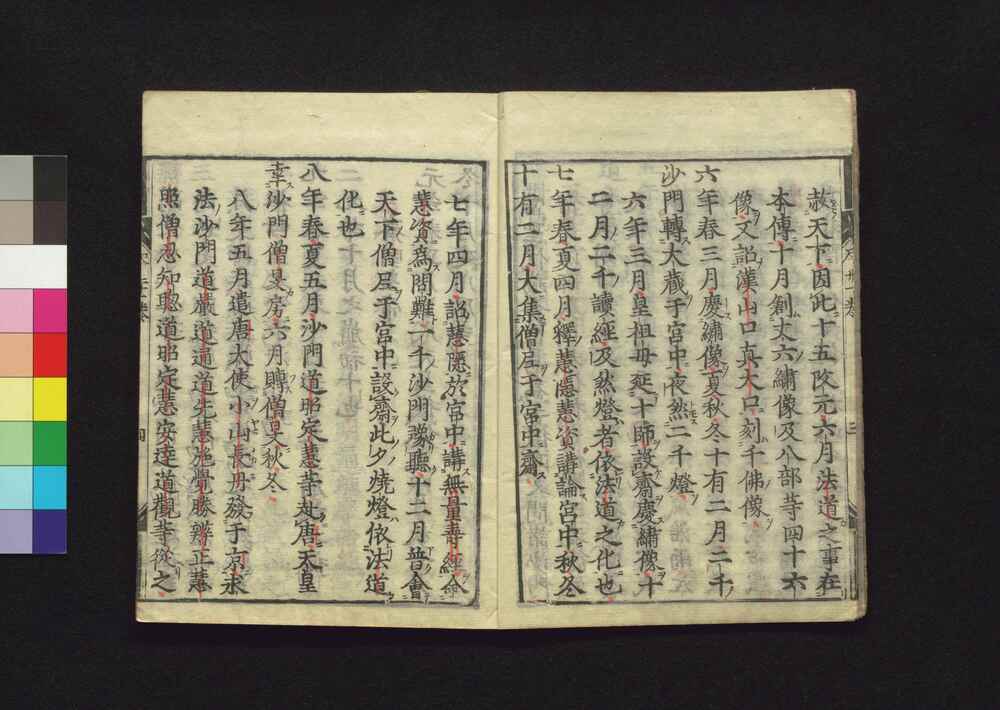 赦天下因此十五改元六月法道之事在
本傳十月創丈六繡像及八部等四十六
像又詔漢山口真大口刻千佛像
六年春三月慶繡像夏秋冬十有二月二千
沙門轉大藏于宮中夜然二千燈
六年三月皇祖母延十師設齋慶繡像十
二月二千讀經及然燈者依法道之化也
七年春夏四月釋慧隱慧資講論宮中秋冬
十有二月大集僧尼于宮中齋
七年四月詔慧隱於宮中講無量壽經令
慧資爲問難一千沙門豫聽十二月普會
天下僧尼于宮中設齋此夕燒燈依法道
化也
八年春夏五月沙門道昭定慧等如唐天皇
幸沙門僧旻房六月賻僧旻秋冬
八年五月遣唐大使小山長丹發于京永
法沙門道嚴道通道光慧施覺勝辨正慧
照僧忍知聰道昭定慧安達道觀等從之